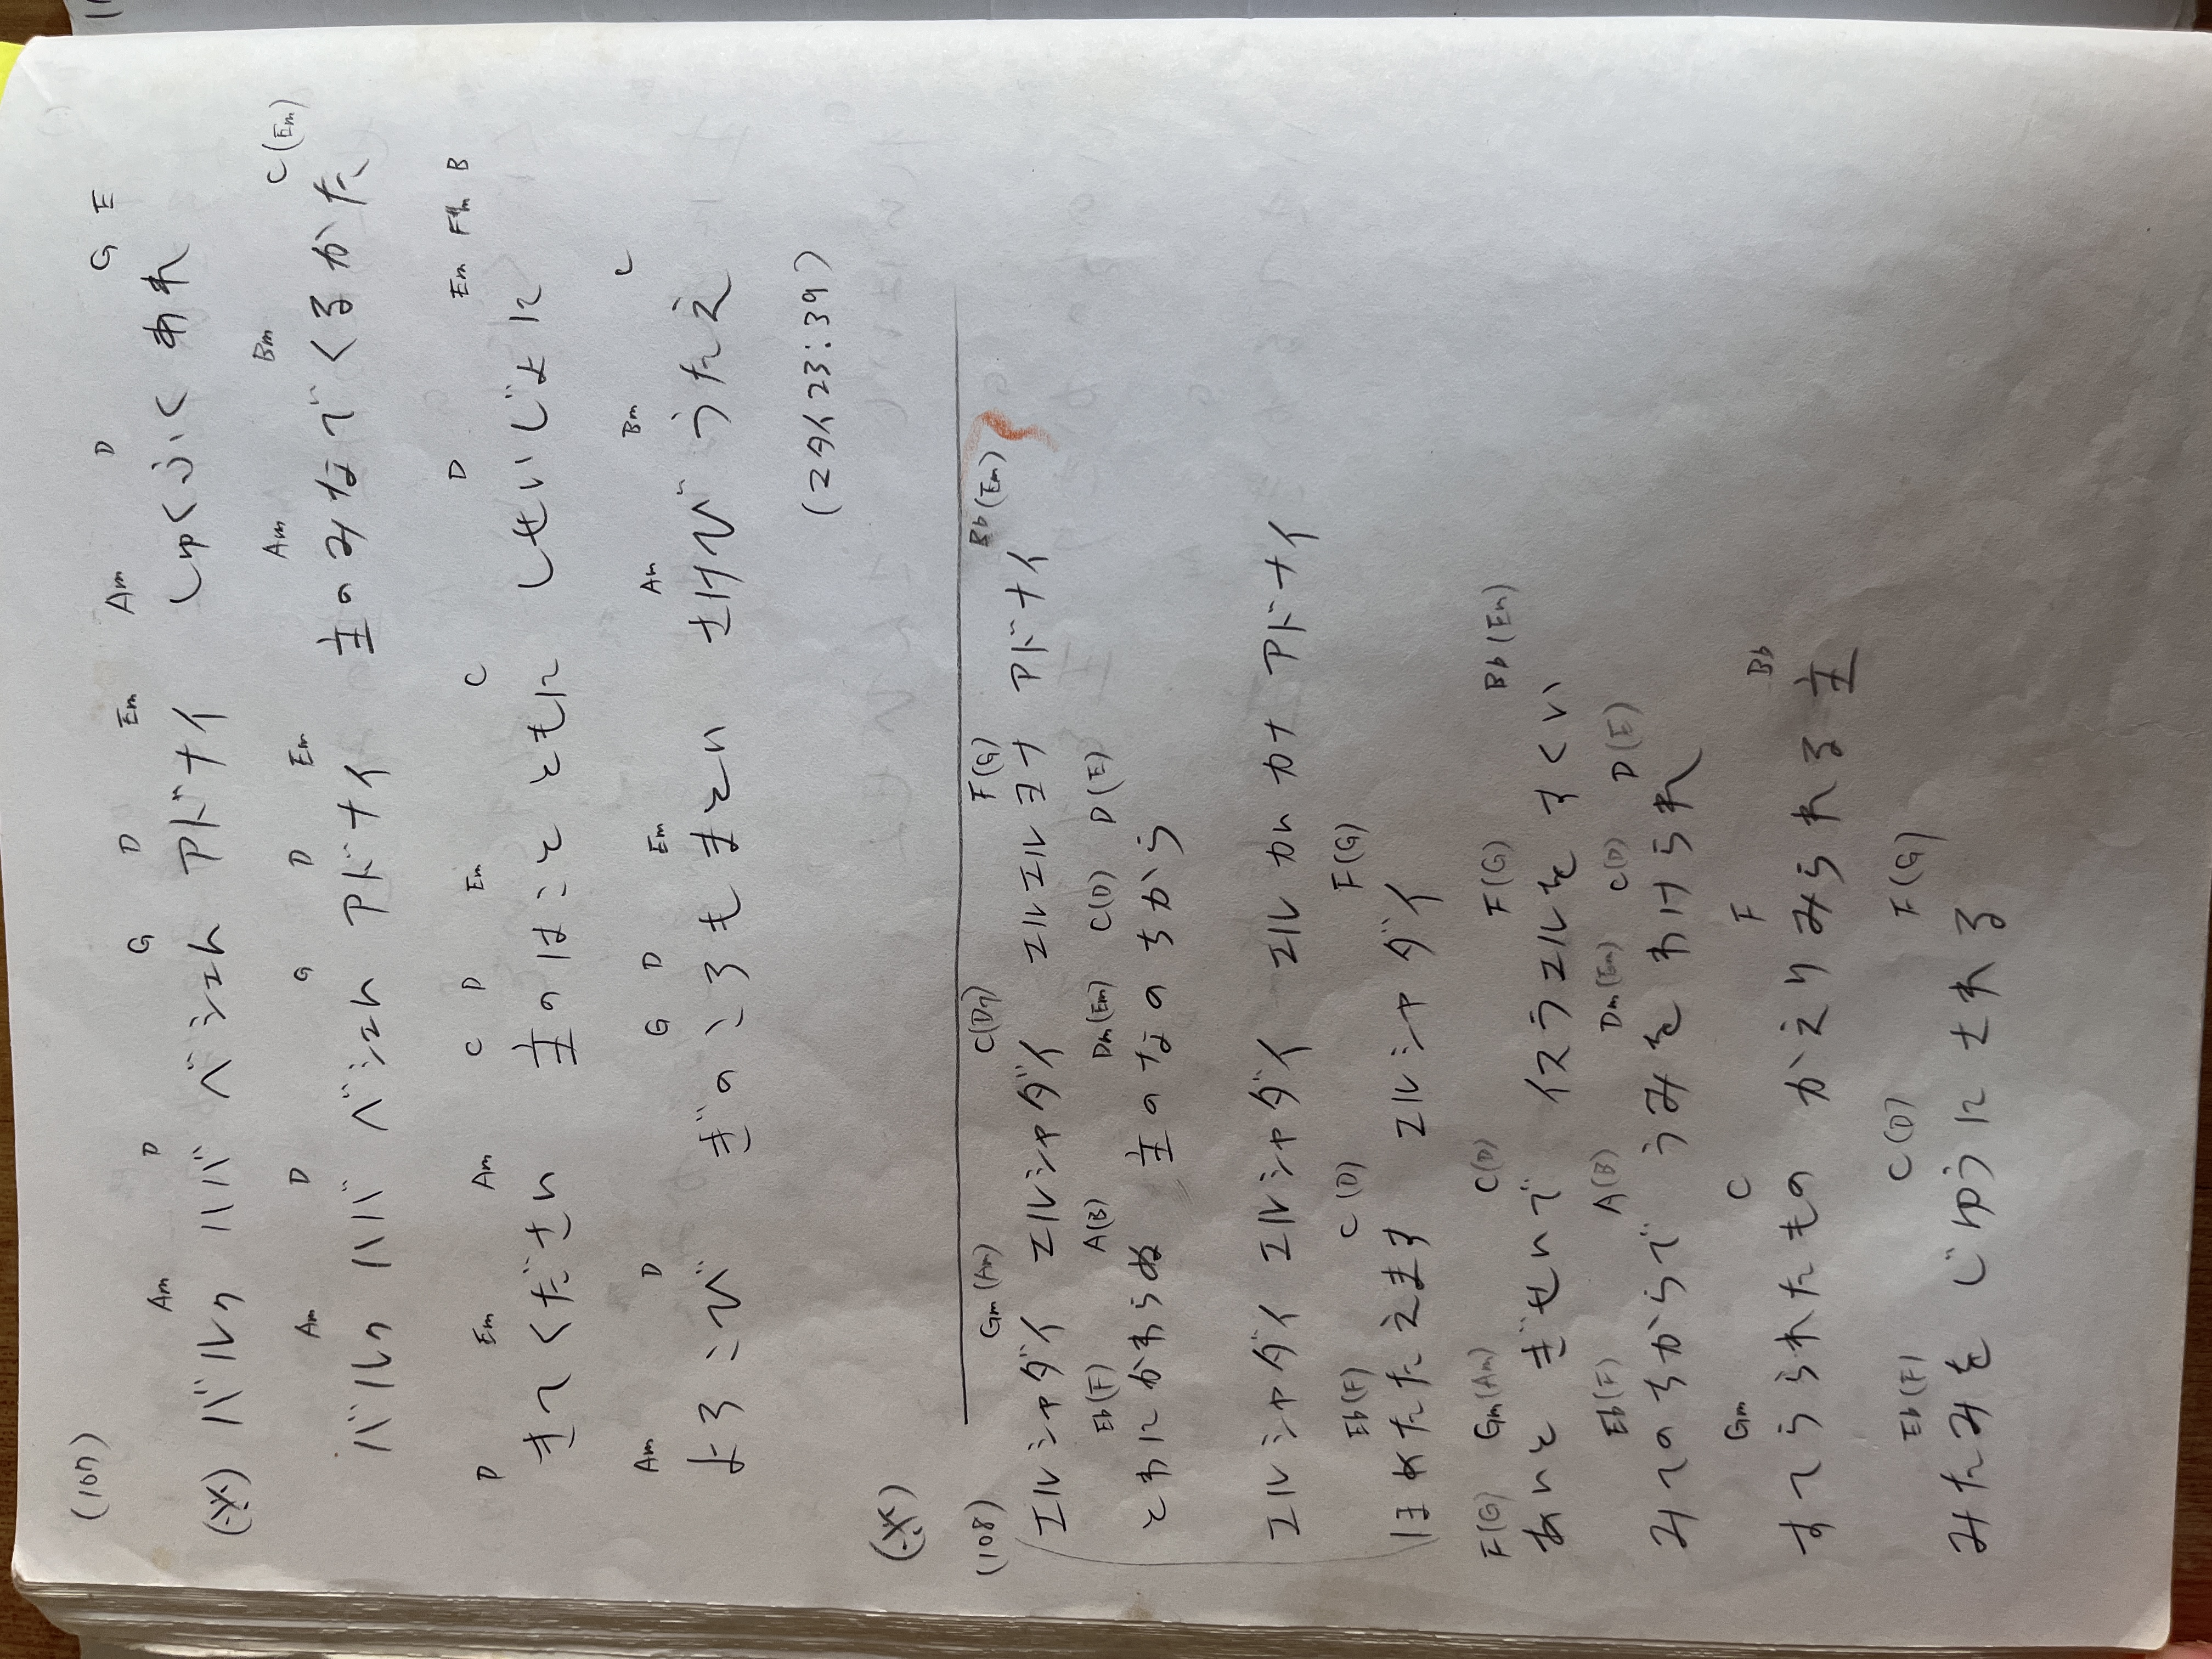 (107)
Am D G D Em Am D G E
(※) バルク ハバ ベシェム アドナイ しゅくふく あれ
Am D G D Em Am Bm C(Em)
バルク ハバ ベシェム アドナイ 主のみなでくるかた
D Em Am C D Em C D Em F#m B
きてください 主のはことともに しせいじょに
Am D G D Em Am Bm C
よろこび ぎのころもまとい さけび うたえ
(マタイ23:39)
(※)
(108)
Gm(Am) C(D7) F(G) Bb(Em)
エルシャダイ エルシャダイ エルエルヨナ アドナイ
Eb(F) A(B) Dm(Em) C(D) D(E)
とわにかわらぬ 主のなのちから
エルシャダイ エルシャダイ エルカムカナ アドナイ
Eb(F) C(D) F(G)
ほめたたえます エルシャダイ
F(G) Gm(Am) C(D) F(G) Bb(Em)
あいと ぎせいで イスラエルを すくい
Eb(F) A(B) Dm(Em) C(D) D(E)
みてのちからで うみを わけられ
Gm C F Bb
すてられたもの かえりみられる主
Eb(F) C(D) F(G)
みたみを じゆうに される